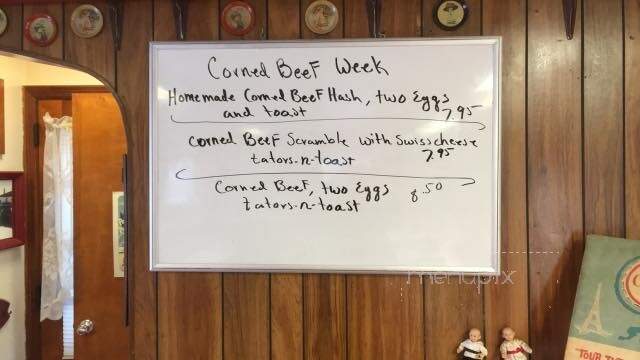 Corned Beef Week
Homemade Corned Beef Hash, two Eggs
and toast 7.95
Corned Beef Scramble with Swisscheese
tators-n-toast 7.95
Corned Beef, two Eggs 8.50
tators-n-toast
menupix
TOUR